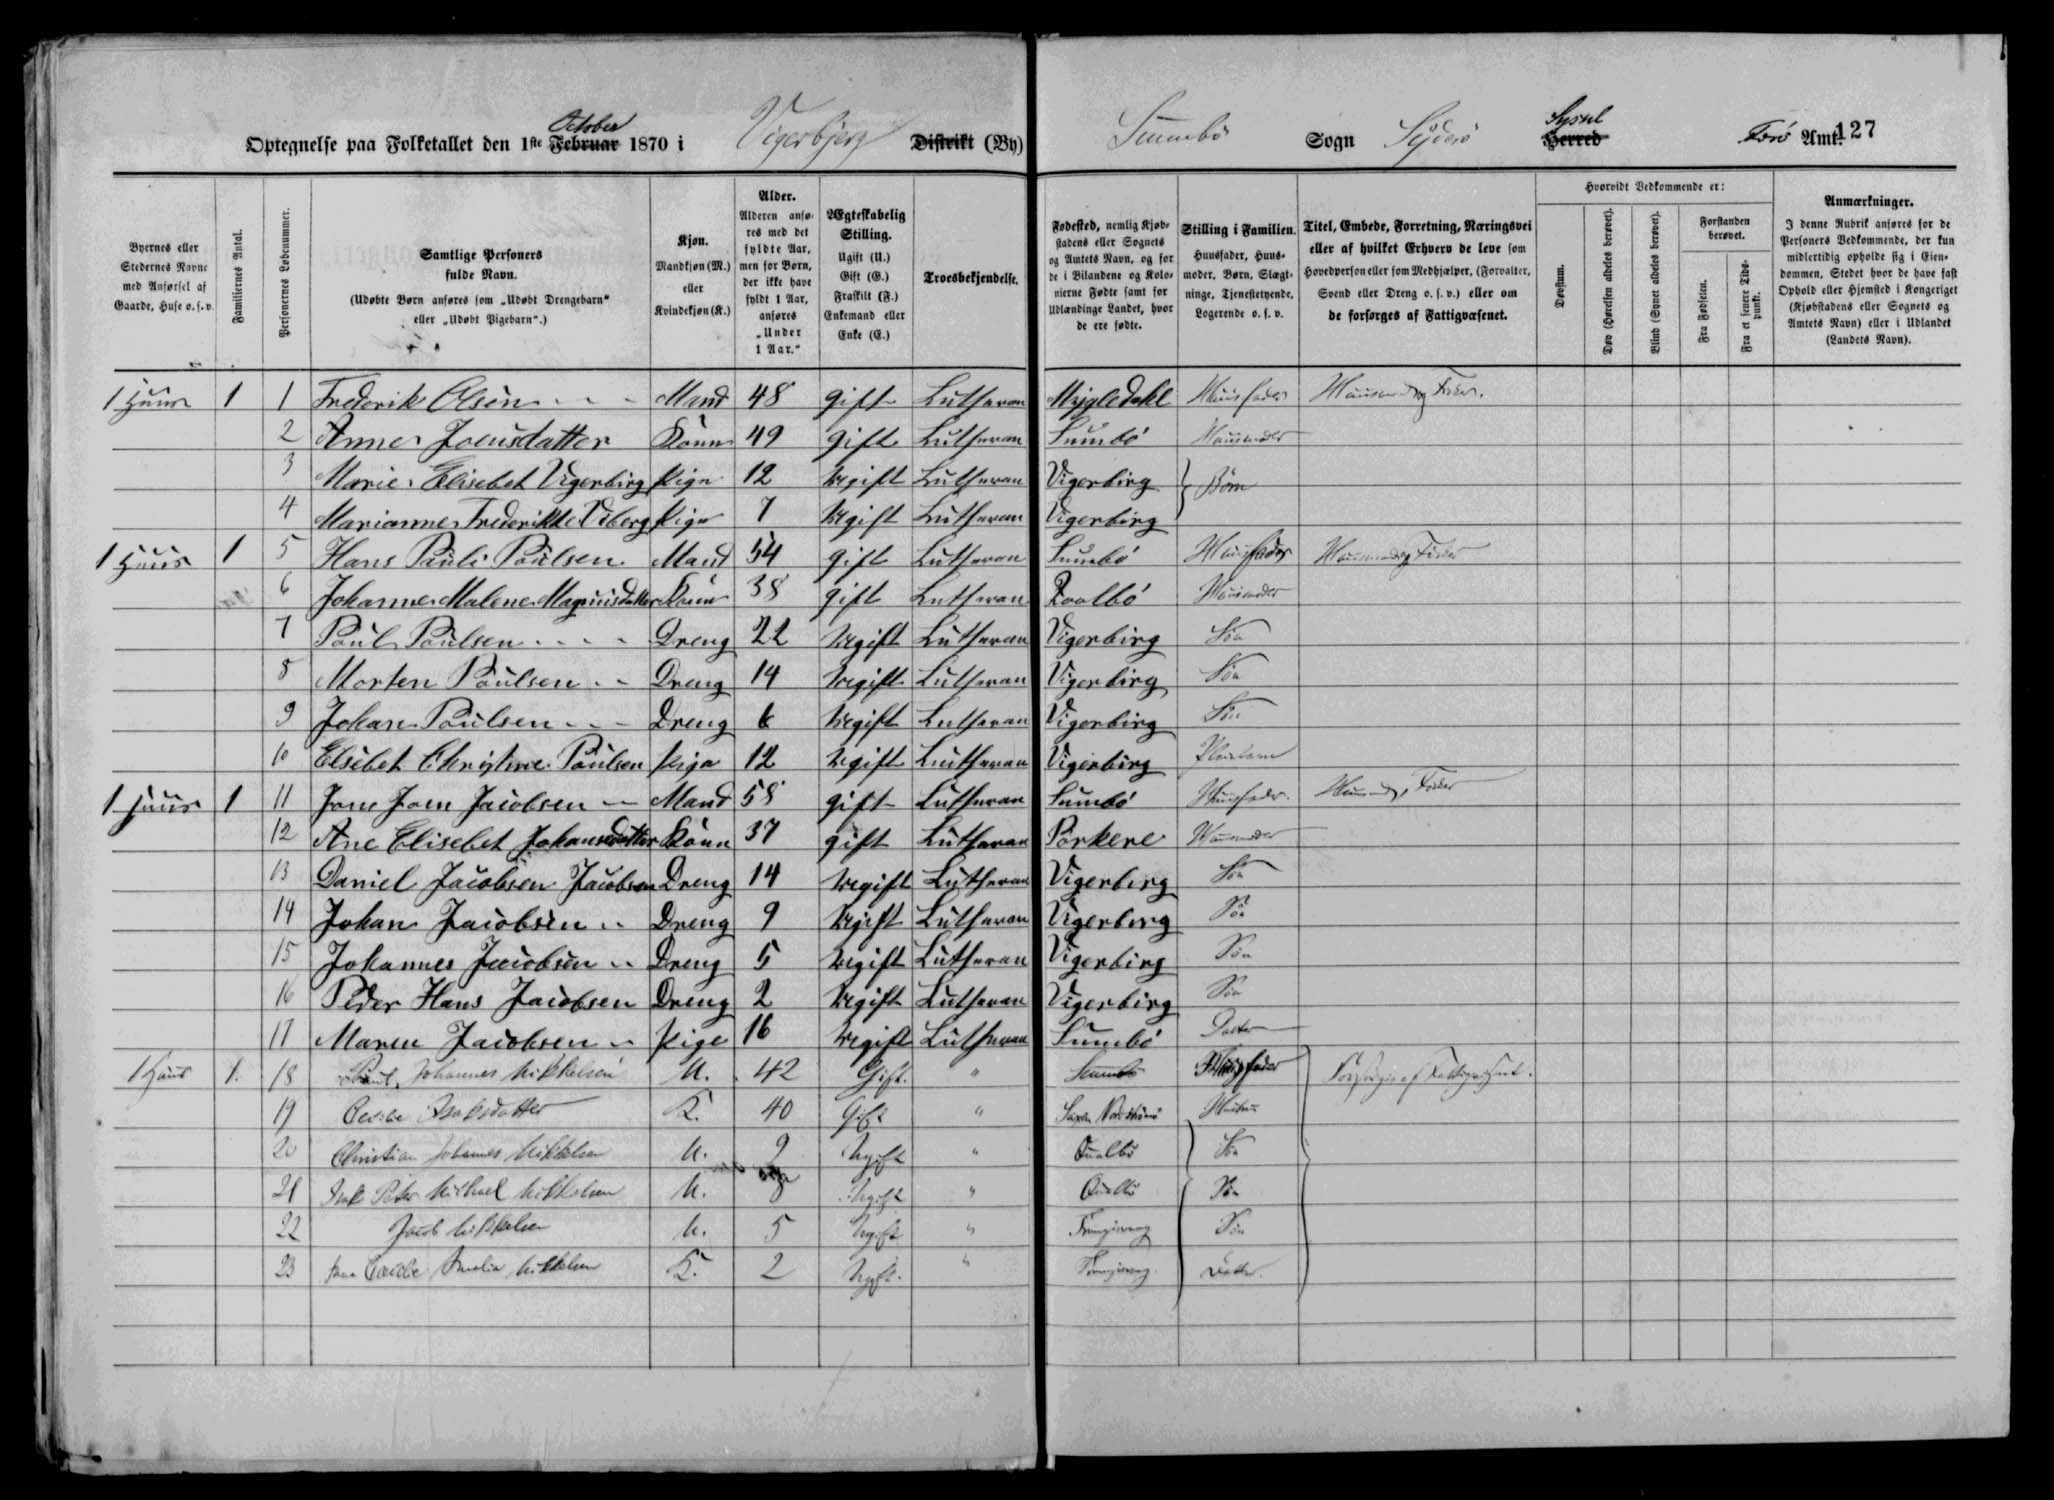 Optegnelse paa Folketallet den 1ste Februar October 1870 i Vigerbjerg Distrikt (By) Sumbö Sogn Syderö Herred Syssel Ferö Amt. 127
Byernes eller Stedernes Navne med Anførsel af Gaarde, Huse o. s. v.
Familiernes Antal.
Personernes Løbenummer.
Samtlige Personers fulde Navn. (Udøbte Børn anføres som „Udøbt Drengebarn“ eller „Udøbt Pigebarn“.)
Kjøn. Mandkjøn (M.) eller Kvindekjøn (K.)
Alder. Alderen anføres med det fyldte Aar, men for Børn, der ikke have fyldt 1 Aar, anføres „Under 1 Aar.“
Ægteskabelig Stilling. Ugift (U.) Gift (G.) Fraskilt (F.) Enkemand eller Enke (E.)
Troesbekjendelse.
Fødested, nemlig Kjøbstadens eller Sognets og Amtets Navn, og for de i Bilandene og Kolonierne Fødte samt for Udlændinge Landet, hvor de ere fødte.
Stilling i Familien. Huusfader, Huusmoder, Børn, Slægtninge, Tjenestetyende, Logerende o. s. v.
Titel, Embede, Forretning, Næringsvei eller af hvilket Erhverv de leve som Hovedperson eller som Medhjælper, (Forvalter, Svend eller Dreng o. s. v.) eller om de forsørges af Fattigvæsenet.
Hvorvidt Vedkommende er:
Døvstum.
Døv (Hørelsen aldeles berøvet).
Blind (Synet aldeles berøvet).
Forstanden berøvet.
Fra Fødselen.
Fra et senere Tidspunkt.
Anmærkninger. I denne Rubrik anføres for de Personers Vedkommende, der kun midlertidig opholde sig i Eiendommen, Stedet hvor de have fast Ophold eller Hjemsted i Kongeriget (Kjøbstadens eller Sognets og Amtets Navn) eller i Udlandet (Landets Navn).
1 Huus 1 1 Frederik Olsen Mand 48 gift Lutheran Mygledahl Huusfader Huusmand og Fisker.
2 Anne Joensdatter Konn 49 gift Lutheran Sumbö Huusmoder
3 Marie Elisebet Vigerbirg Pige 12 Ugift Lutheran Vigerbirg Börn
4 Marianne Frederikke Viberg Pige 7 Ugift Lutheran Vigerbirg
1 Huus 1 5 Hans Pauli Poulsen Mand 54 gift Lutheran Sumbö Huusfader Huusmand og Fisker
6 Johanne Malene Magnusdatter Konn 38 gift Lutheran Qvalbö Huusmoder
7 Poul Poulsen Dreng 22 Ugift Lutheran Vigerbirg Sön
8 Morten Poulsen Dreng 14 Ugift Lutheran Vigerbirg Sön
9 Johan Poulsen Dreng 6 Ugift Lutheran Vigerbirg Sön
10 Elsebet Christine Poulsen Pige 12 Ugift Lutheran Vigerbirg
1 Huus 1 11 Jone Joen Jacobsen Mand 58 gift Lutheran Sumbö Huusfader Huusmand, Fisker
12 Ane Elisebet Johansdatter Konn 37 gift Lutheran Porkere Huusmoder
13 Daniel Jacobsen Jacobsen Dreng 14 Ugift Lutheran Vigerbirg Sön
14 Johan Jacobsen Dreng 9 Ugift Lutheran Vigerbirg Sön
15 Johannes Jacobsen Dreng 5 Ugift Lutheran Vigerbirg Sön
16 Peder Hans Jacobsen Dreng 2 Ugift Lutheran Vigerbirg Sön
17 Maren Jacobsen Pige 16 Ugift Lutheran Sumbö Datter
1 Huus 1. 18 Poul Johannes Mikkelsen M. 42 Gift. " Sumbö Huusfader Forsörges af Fattigvæsnet.
19 Isaksdatter K. 40 Gift "
20 Christian Johannes Mikkelsen M. 9 Ugift " Qualbö Sön
21 Peter Michael Mikkelsen M. Ugift " Qualbö Sön
22 Jacob Mikkelsen M. 5 Ugift " Sön
23 Amalia Mikkelsen K. 2 Ugift. " Datter.